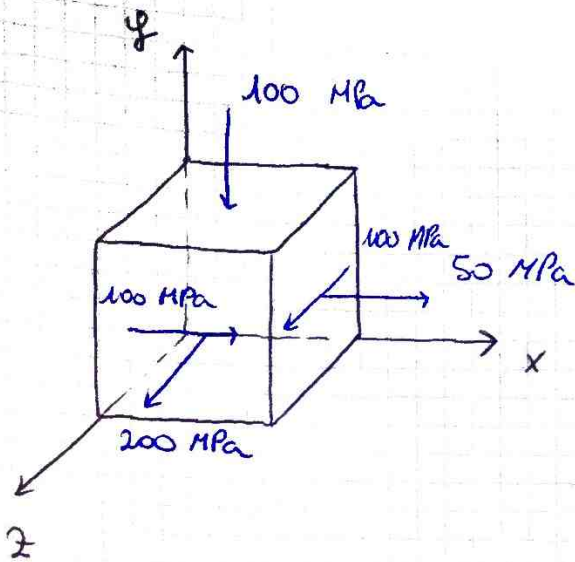 y
100 MPa
100 MPa
50 MPa
100 MPa
x
200 MPa
z